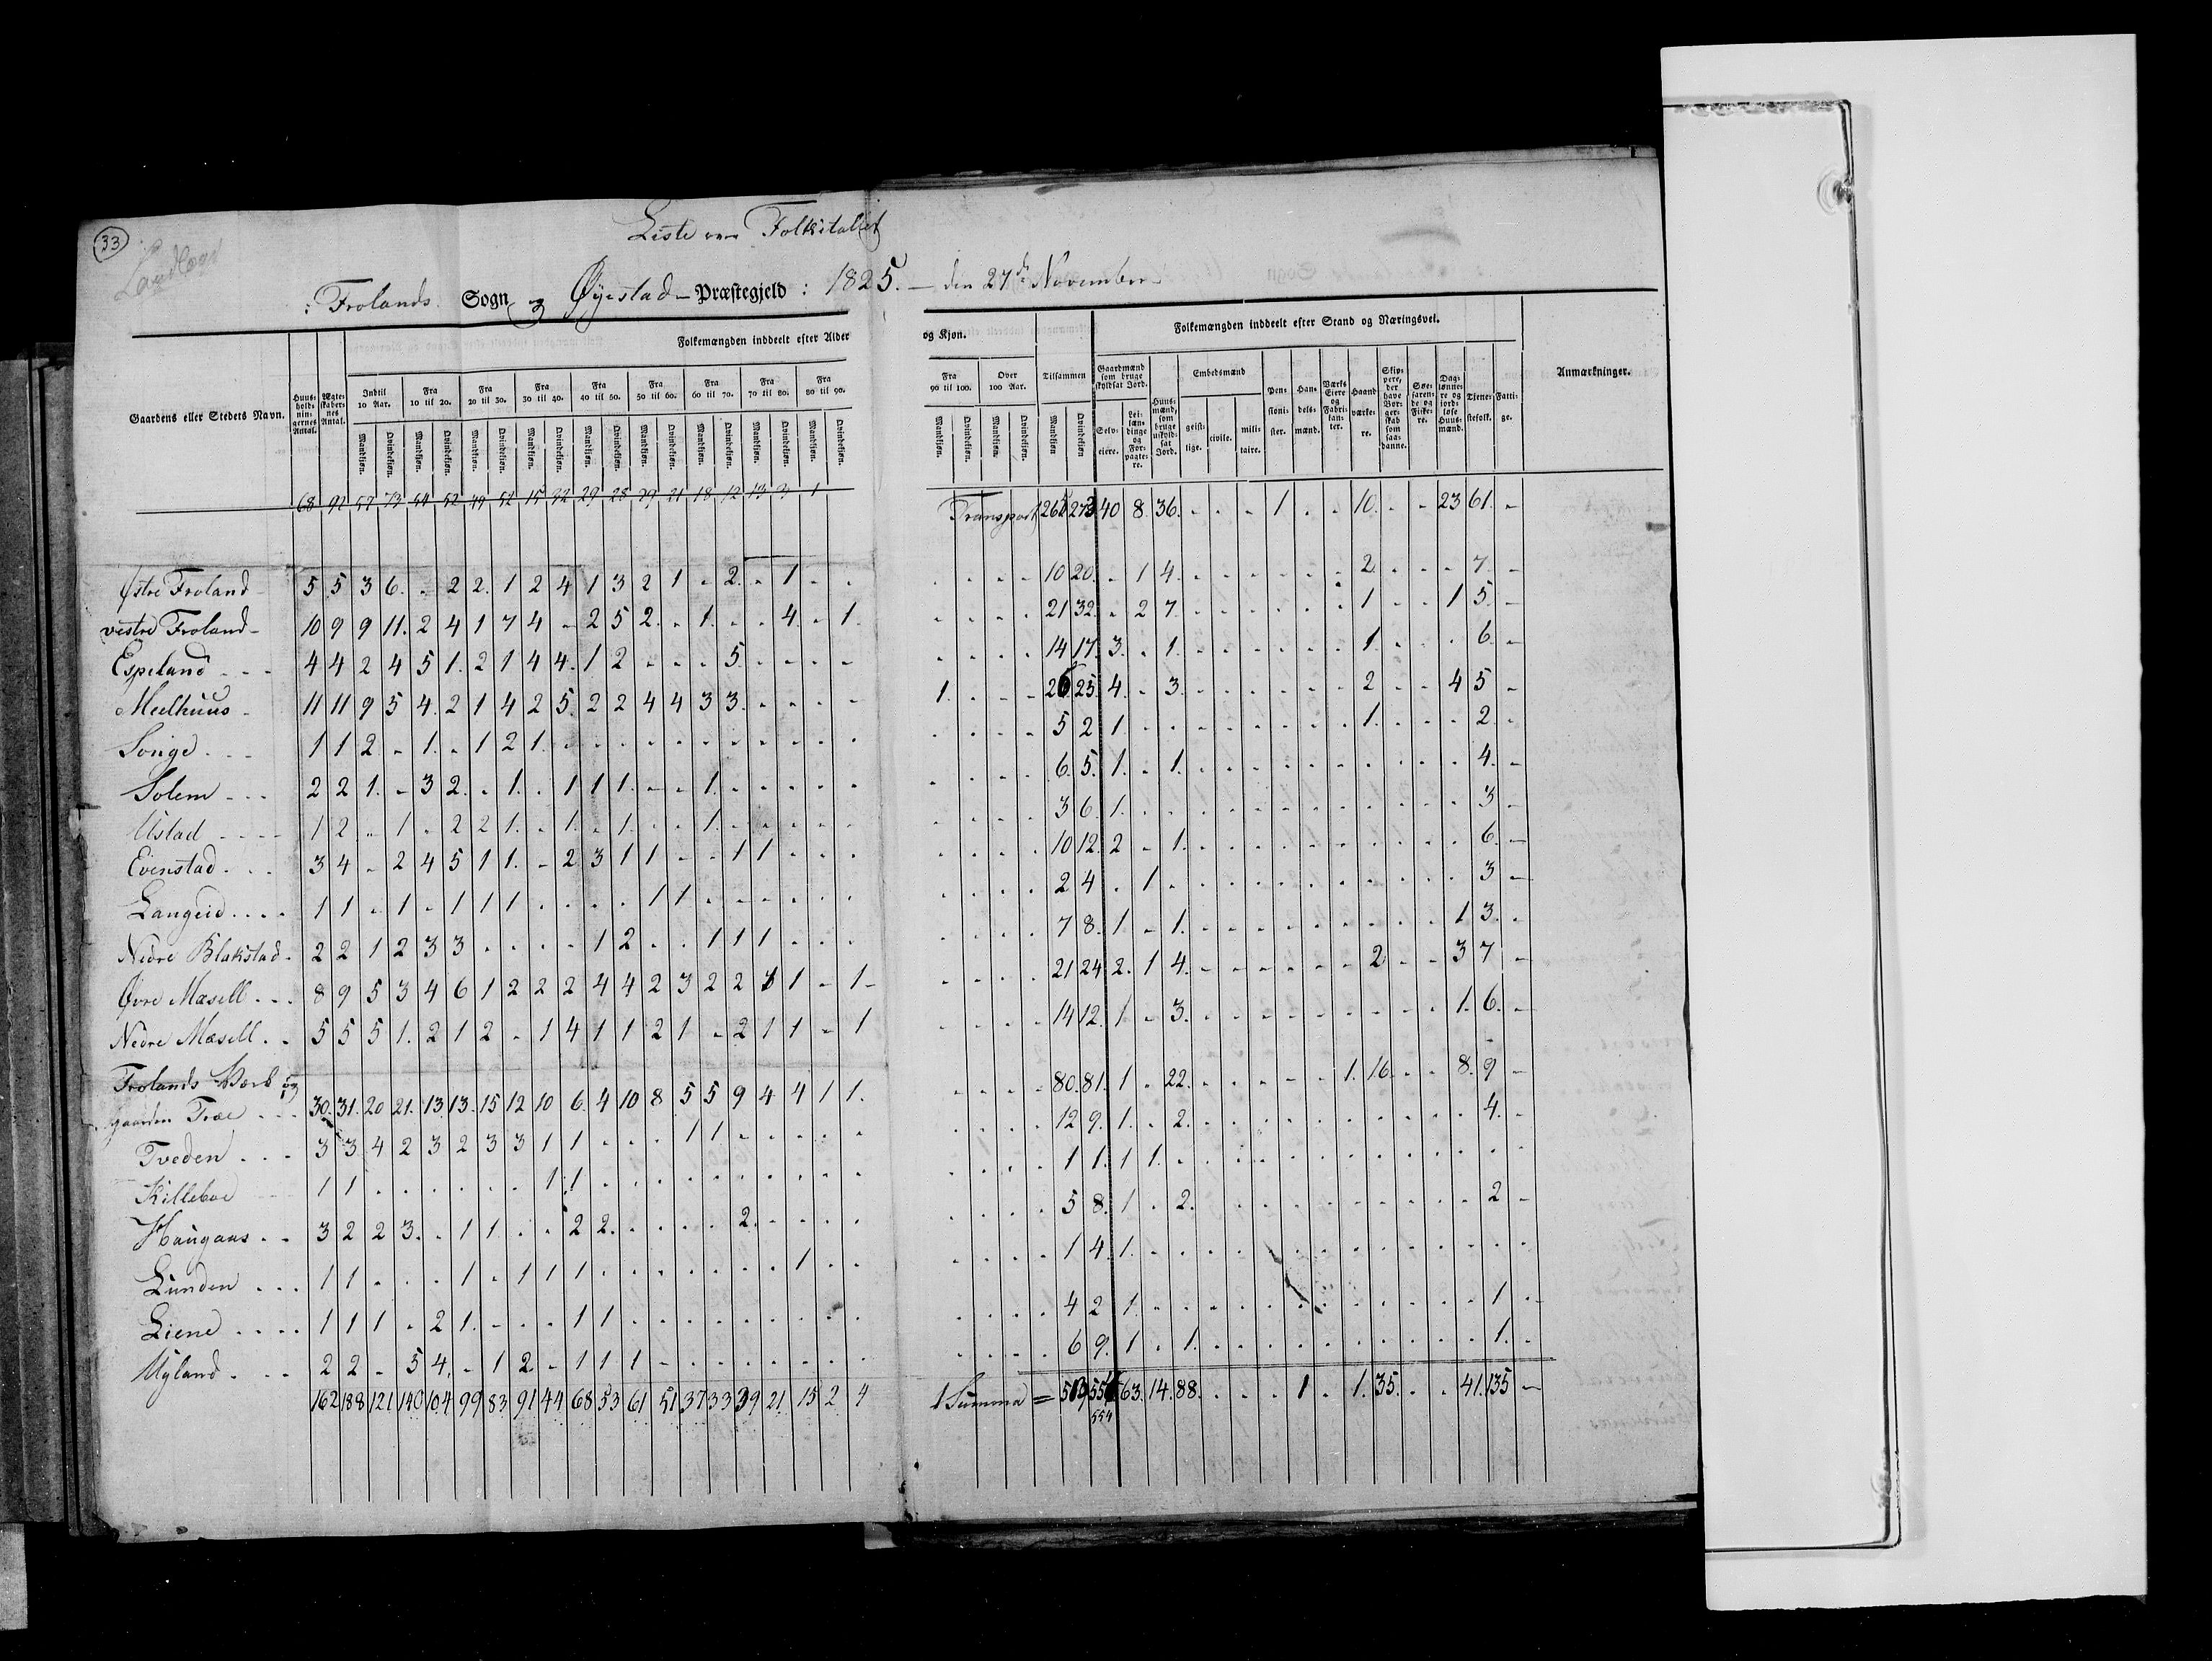 33
Landsogn
Liste om Folketallet
: Frolands Sogn og Øyestad - Præstegjeld : 1825. - den 27de November
Gaardens eller Stedets Navn. Huus-hold-nin-gernes Antal. Ægte-skaber-nes Antal. Folkemængden inddeelt efter Alder og Kjøn. Tilsammen Folkemængden inddeelt efter Stand og Næringsvei. Anmærkninger.
Indtil 10 Aar. Fra 10 til 20. Fra 20 til 30. Fra 30 til 40. Fra 40 til 50. Fra 50 til 60. Fra 60 til 70. Fra 70 til 80. Fra 80 til 90. Fra 90 til 100. Over 100 Aar.
Gaardmænd som bruge skyldsat Jord. Huus-mænd, som bruge uskyld-sat Jord. Embedsmænd Pen-sioni-ster. Han-dels-mænd. Værks Eiere og Fabri-kan-ter. Haand-værke-re. Skip-pere, der have Bor-ger-skab som saa-danne. Søe-faren-de og Fiske-re. Dag-lønne-re og jord-løse Huus-mænd. Tjene-stefolk. Fatti-ge.
Mandkjøn. Qvindekjøn. Mandkjøn. Qvindekjøn. Mandkjøn. Qvindekjøn. Mandkjøn. Qvindekjøn. Mandkjøn. Qvindekjøn. Mandkjøn. Qvindekjøn. Mandkjøn. Qvindekjøn. Mandkjøn. Qvindekjøn. Mandkjøn. Qvindekjøn. Mandkjøn. Qvindekjøn. Mandkjøn. Qvindekjøn. Mandkjøn Qvindekjøn Selv-eiere. Lei-læn-dinge og For-pagte-re. geist-lige. civile. mili-taire.
68 92 57 73 54 52 49 52 15 32 29 28 29 21 18 12 13 3 1 Transport 273 40 8 36. - - - 1 - - 10. - - 23 61. -
Østre Froland 5 5 3 6. - 2 2. 1 2 4 1 3 2 1 - 2. - 1 - - - - - - 10 20. - 1 4. - - - - - - 2. - - - 7. -
vestre Froland - 10 9 9 11. 2 4 1 7 4 - 2 5 2. - 1. - - 4. - 1. - - - - 21 32. - 2 7. - - - - - - 1 - - 1 5. -
Espeland - - - 4 4 2 4 5 1. 2 1 4 4. 1 2 - - - 5. - - - - - - - - 14 17. 3. - 1. - - - - - - 1. - - - 6. -
Meelhuus - 11 11 9 5 4. 2 1 4 2 5. 2 2 4 4 3 3. - - - - 1. - - - 26 25. 4. - 3. - - - - - - 2 - - 4 5 -
Songe - - - 1 1 2 - 1. - 1 2 1. - - - - - - - - - - - - - - - 5 2 1. - - - - - - - - 1. - - - 2. -
Solem - - - 2 2 1. - 3 2. - 1. - 1 1 1. - - 1. - - - - - - - - - 6. 5. 1. - 1. - - - - - - - - - - 4. -
Ustad - - - - 1 2 - 1. - 2 2 1. - 1. - 1. - - 1. - - - - - - - - - 3 6. 1. - - - - - - - - - - - - 3 -
Evenstad - - - 3 4 - 2 4 5 1 1. - 2 3 1 1 - - 1 1 - - - - - - - 10 12. 2 - 1. - - - - - - - - - - 6. -
Langeid - - - - 1 1 - 1 - 1 1 1 - - - - 1 1 - - - - - - - - - - 2 4 - 1. - - - - - - - - - - - 3 -
Nedre Blakstad - 2 2 1 2 3 3 - - - - 1 2. - - 1 1 1 - - - - - - - 7 8. 1 - 1. - - - - - - - - - 1 3. -
Øvre Mæsell - - - 8 9 5 3 4 6 1 2 2 2 4 4 2 3 2 2 1 1 - 1 - - - - 21 24 2. 1 4. - - - - - - 2 - - 3 7 -
Nedre Mæsell - - 5 5 5 1. 2 1 2 - 1 4 1 1 2 1 - 2 1 1 - 1 - - - - 14 12. 1 - 3. - - - - - - - - - 1. 6. -
Frolands Værk og
gaarden Træe - - - 30. 31. 20 21. 13. 13. 15 12 10 6. 4 10 8. 5 5 9 4 4 1 1. - - - - 80. 81. 1 - 22. - - - - - 1. 16. - - 8. 9 -
Tveden - - - 3 3 4 2 3 2 3 3 1 1 - - - 1 1 - - - - - - - - - 12 9. 1. - 2. - - - - - - - - - - 4. -
Killeboe - - 1 1 - - - - - - 1 1 - - - - - - - - - - - - - - 1 1. 1 1. - - - - - - - - - - - - -
Haugaas - - 3 2 2 3. - 1 1. - - 2 2. - - - - 2. - - - - - - - - 5 8. 1 - 2. - - - - - - - - - - 2 -
Lunden - - - 1 1 - - - 1 - 1 1 1 - - - - - - - 1 - - - - - - 1 4. 1. - - - - - - - - - - - - - -
Liene - - - - 1 1 1 - 2 1. - - - 1 1 - - - - - - - - - - - - - 4 2 1. - - - - - - - - - - - - 1 -
Myland - - - 2 2 - 5 4. - 1 2 - 1 1 1 - - - - - - - - - - - - 6 9. 1 - 1. - - - - - - - - - - 1. -
162 188 121 140 104 99 83 91 44 68 53 61 51 37 33 39 21 15 2 4 1 Summa = 63. 14. 88. - - - 1 - 1. 35. - - 41. 135 -
554